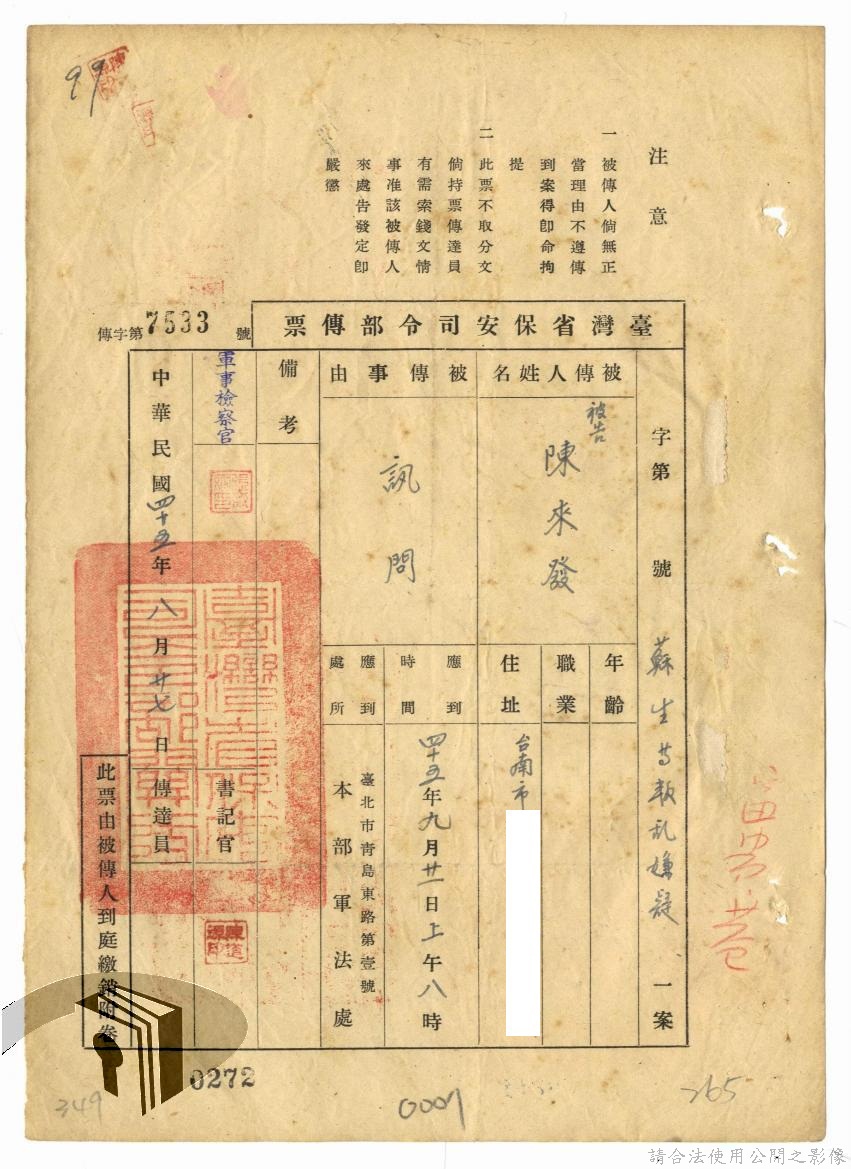 99
注意
一 被傳人倘無正
當理由不遵傳
到案得卽命拘
提
二 此票不取分文
倘持票傳達員
有需索錢文情
事准該被傳人
來處告發定卽
嚴懲
臺灣省保安司令部傳票
傳字第7533號
字第 號 蘇生等叛乱嫌疑 一案
被傳人姓名
被告
陳來發
年齡
職業
住址
台南市
被傳事由
訊問
應到時間
四十五年九月廿一日上午八時
應到處所
臺北市靑島東路第壹號
本部軍法處
備考
軍事檢察官
書記官
中華民國四十五年八月廿七日
傳達員
此票由被傳人到庭繳銷附卷
0272
349
0007
265
請合法使用公開之影像